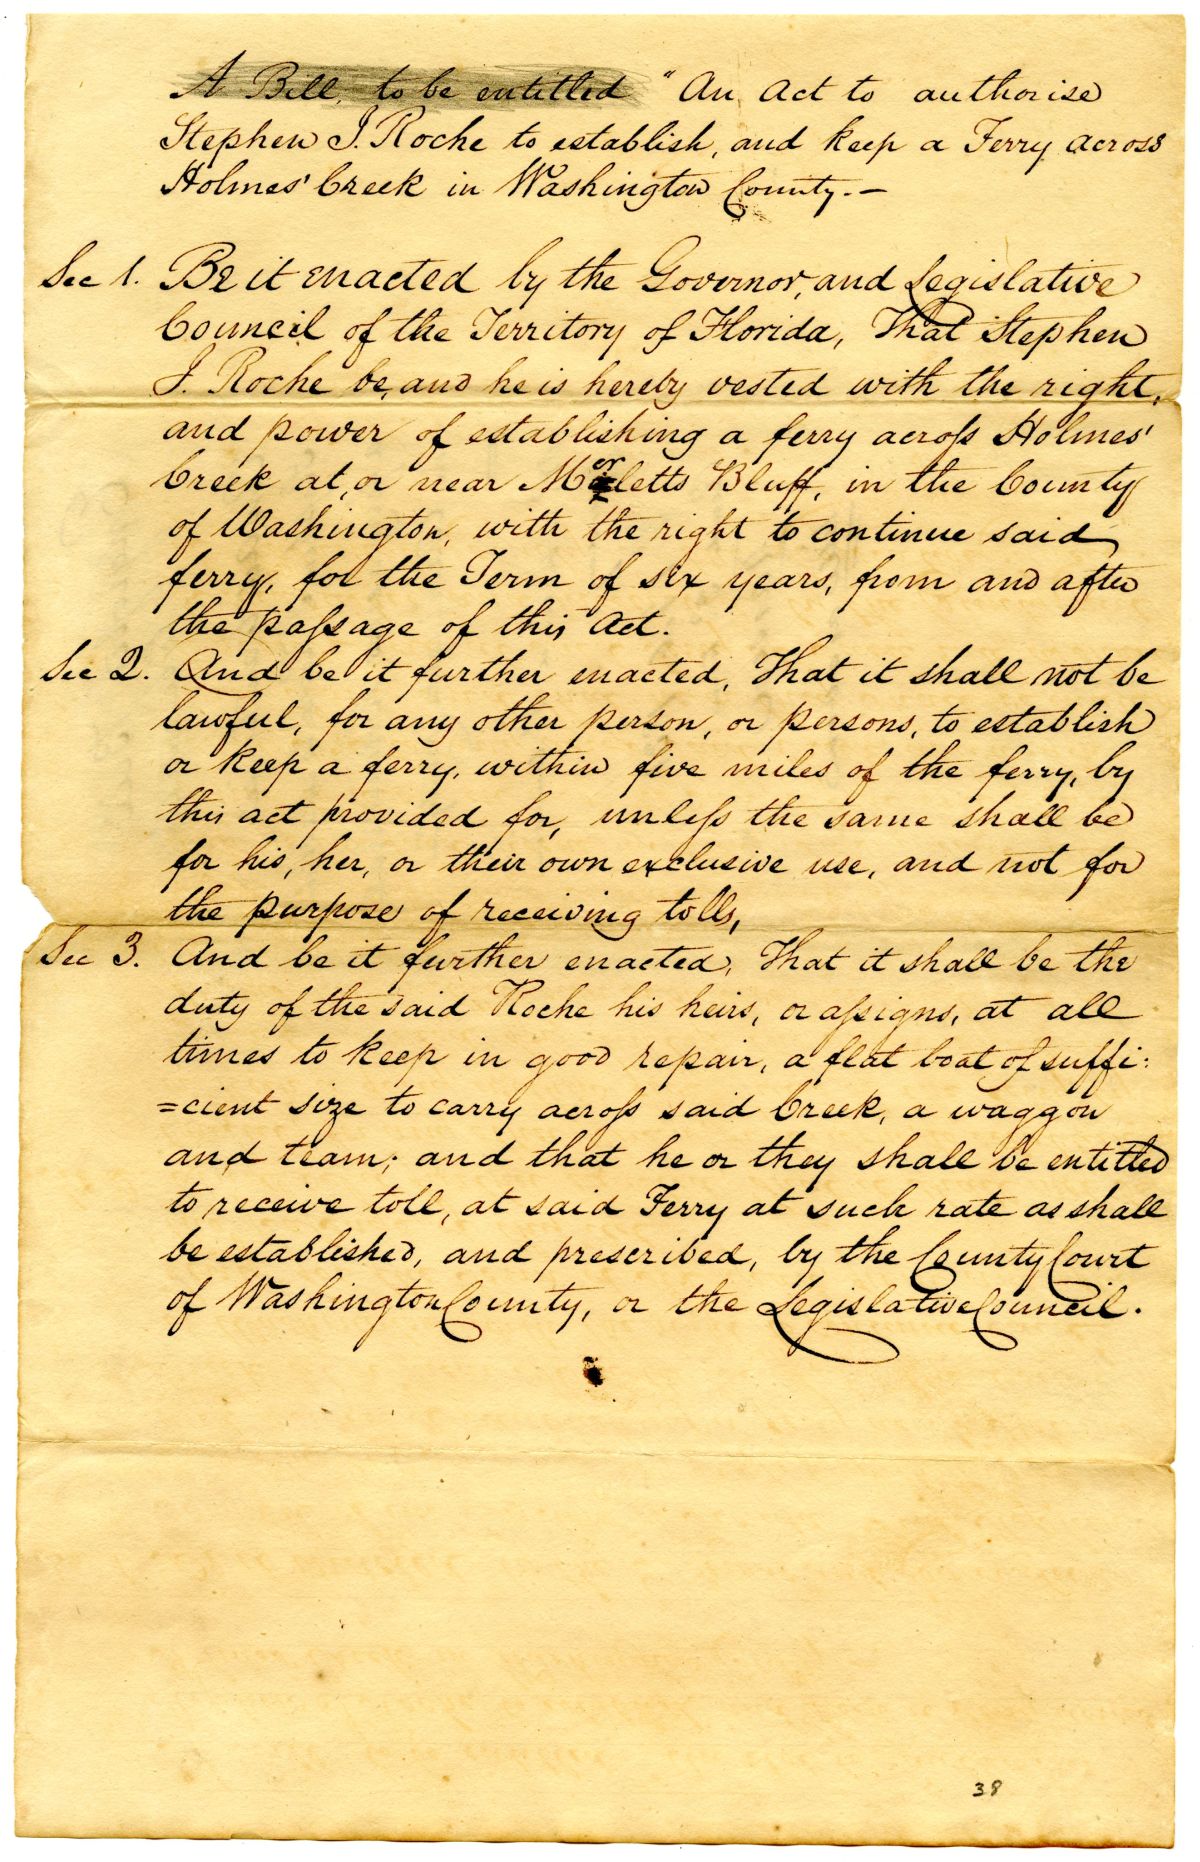 A Bill, to be entitled "An Act to authorise
Stephen J. Roche to establish, and keep a Ferry across
Holmes' Creek in Washington County.—
Sec 1. Be it enacted by the Governor, and Legislative
Council of the Territory of Florida, That Stephen
J. Roche be, and he is hereby vested with the right,
and power of establishing a ferry across Holmes'
Creek at, or near Merletts Bluff, in the County
of Washington, with the right to continue said
ferry, for the Term of six years, from and after
the passage of this Act.
Sec 2. And be it further enacted, That it shall not be
lawful, for any other person, or persons, to establish
or keep a ferry, within five miles of the ferry, by
this act provided for, unless the same shall be
for his, her, or their own exclusive use, and not for
the purpose of receiving tolls,
Sec 3. And be it further enacted, That it shall be the
duty of the said Roche his heirs, or assigns, at all
times to keep in good repair, a flat boat of suffi:
=cient size to carry across said Creek, a waggon
and team; and that he or they shall be entitled
to receive toll, at said Ferry at such rate as shall
be established, and prescribed, by the County Court
of Washington County, or the Legislative Council.
38